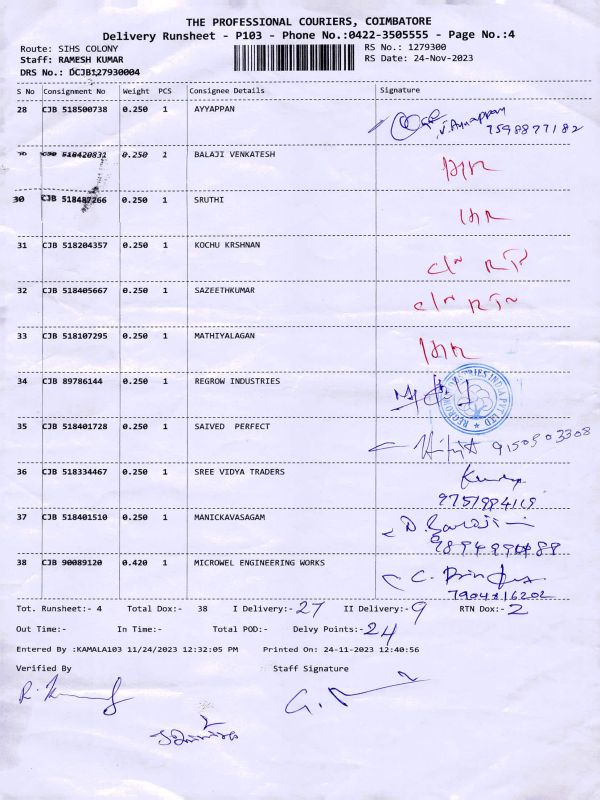 THE PROFESSIONAL COURIERS, COIMBATORE
Delivery Runsheet - P103 - Phone No.:0422-3505555 - Page No.:4
Route: SIHS COLONY RS No.: 1279300
Staff: RAMESH KUMAR RS Date: 24-Nov-2023
DRS No.: DCJB127930004
S No Consignment No Weight PCS Consignee Details Signature
28 CJB 518500738 0.250 1 AYYAPPAN
V. Ayyappan
7598877182
CJB 518420831 0.250 1 BALAJI VENKATESH
30 CJB 518487266 0.250 1 SRUTHI
31 CJB 518204357 0.250 1 KOCHU KRSHNAN
32 CJB 518405667 0.250 1 SAZEETHKUMAR
33 CJB 518107295 0.250 1 MATHIYALAGAN
34 CJB 89786144 0.250 1 REGROW INDUSTRIES
REGROW INDUSTRIES INDIA PVT LTD
35 CJB 518401728 0.250 1 SAIVED PERFECT
9150503308
36 CJB 518334467 0.250 1 SREE VIDYA TRADERS
37 CJB 518401510 0.250 1 MANICKAVASAGAM
38 CJB 90089120 0.420 1 MICROWEL ENGINEERING WORKS
Tot. Runsheet:- 4 Total Dox:- 38 I Delivery:- 27 II Delivery:- 9 RTN Dox:- 2
Out Time:- In Time:- Total POD:- Delvy Points:- 24
Entered By :KAMALA103 11/24/2023 12:32:05 PM Printed On: 24-11-2023 12:40:56
Verified By Staff Signature